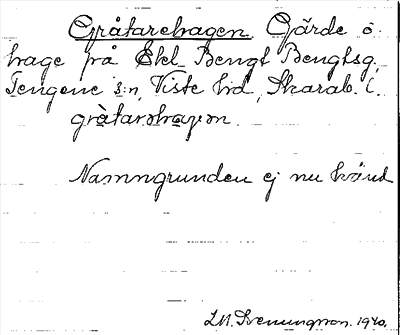 Gråtarehagen Gärde o.
hage på Ekl. Bengt Bengtsg.
Tengene s:n, Viste hd, Skarab. l.
gråtarəhagən.
Namngrunden ej nu känd
L.M. Svenungsson. 1940.